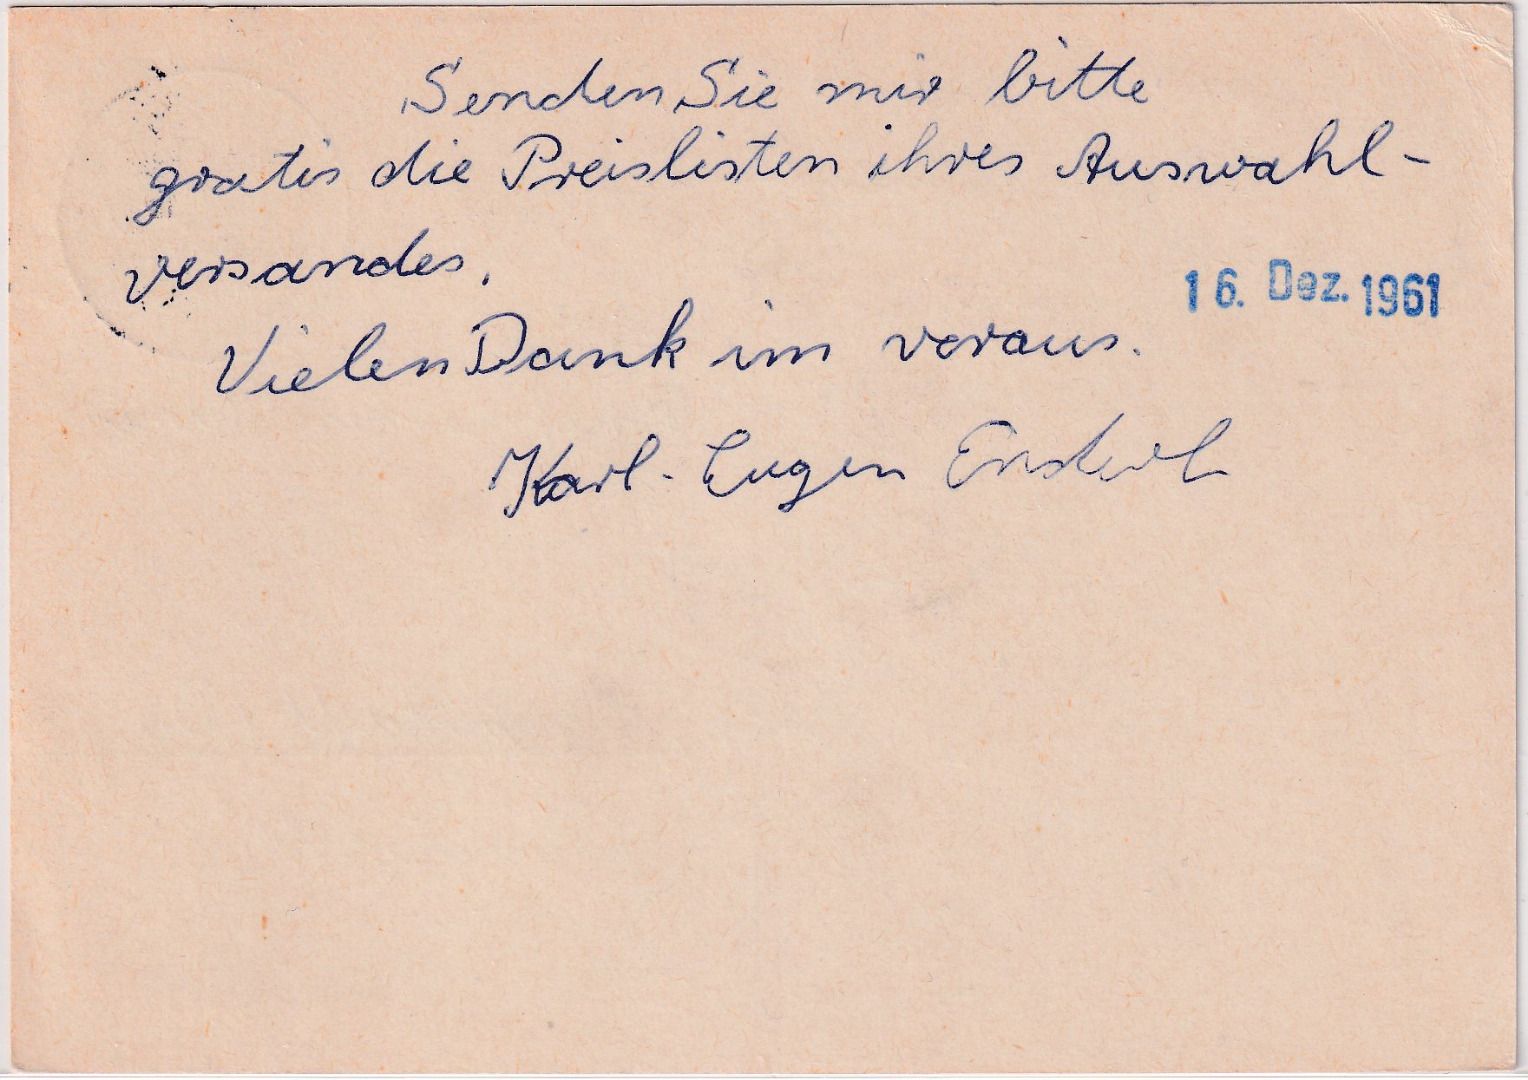 Senden Sie mir bitte
gratis die Preislisten ihres Auswahl-
versandes.
16. Dez. 1961
Vielen Dank im voraus.
Karl-Eugen